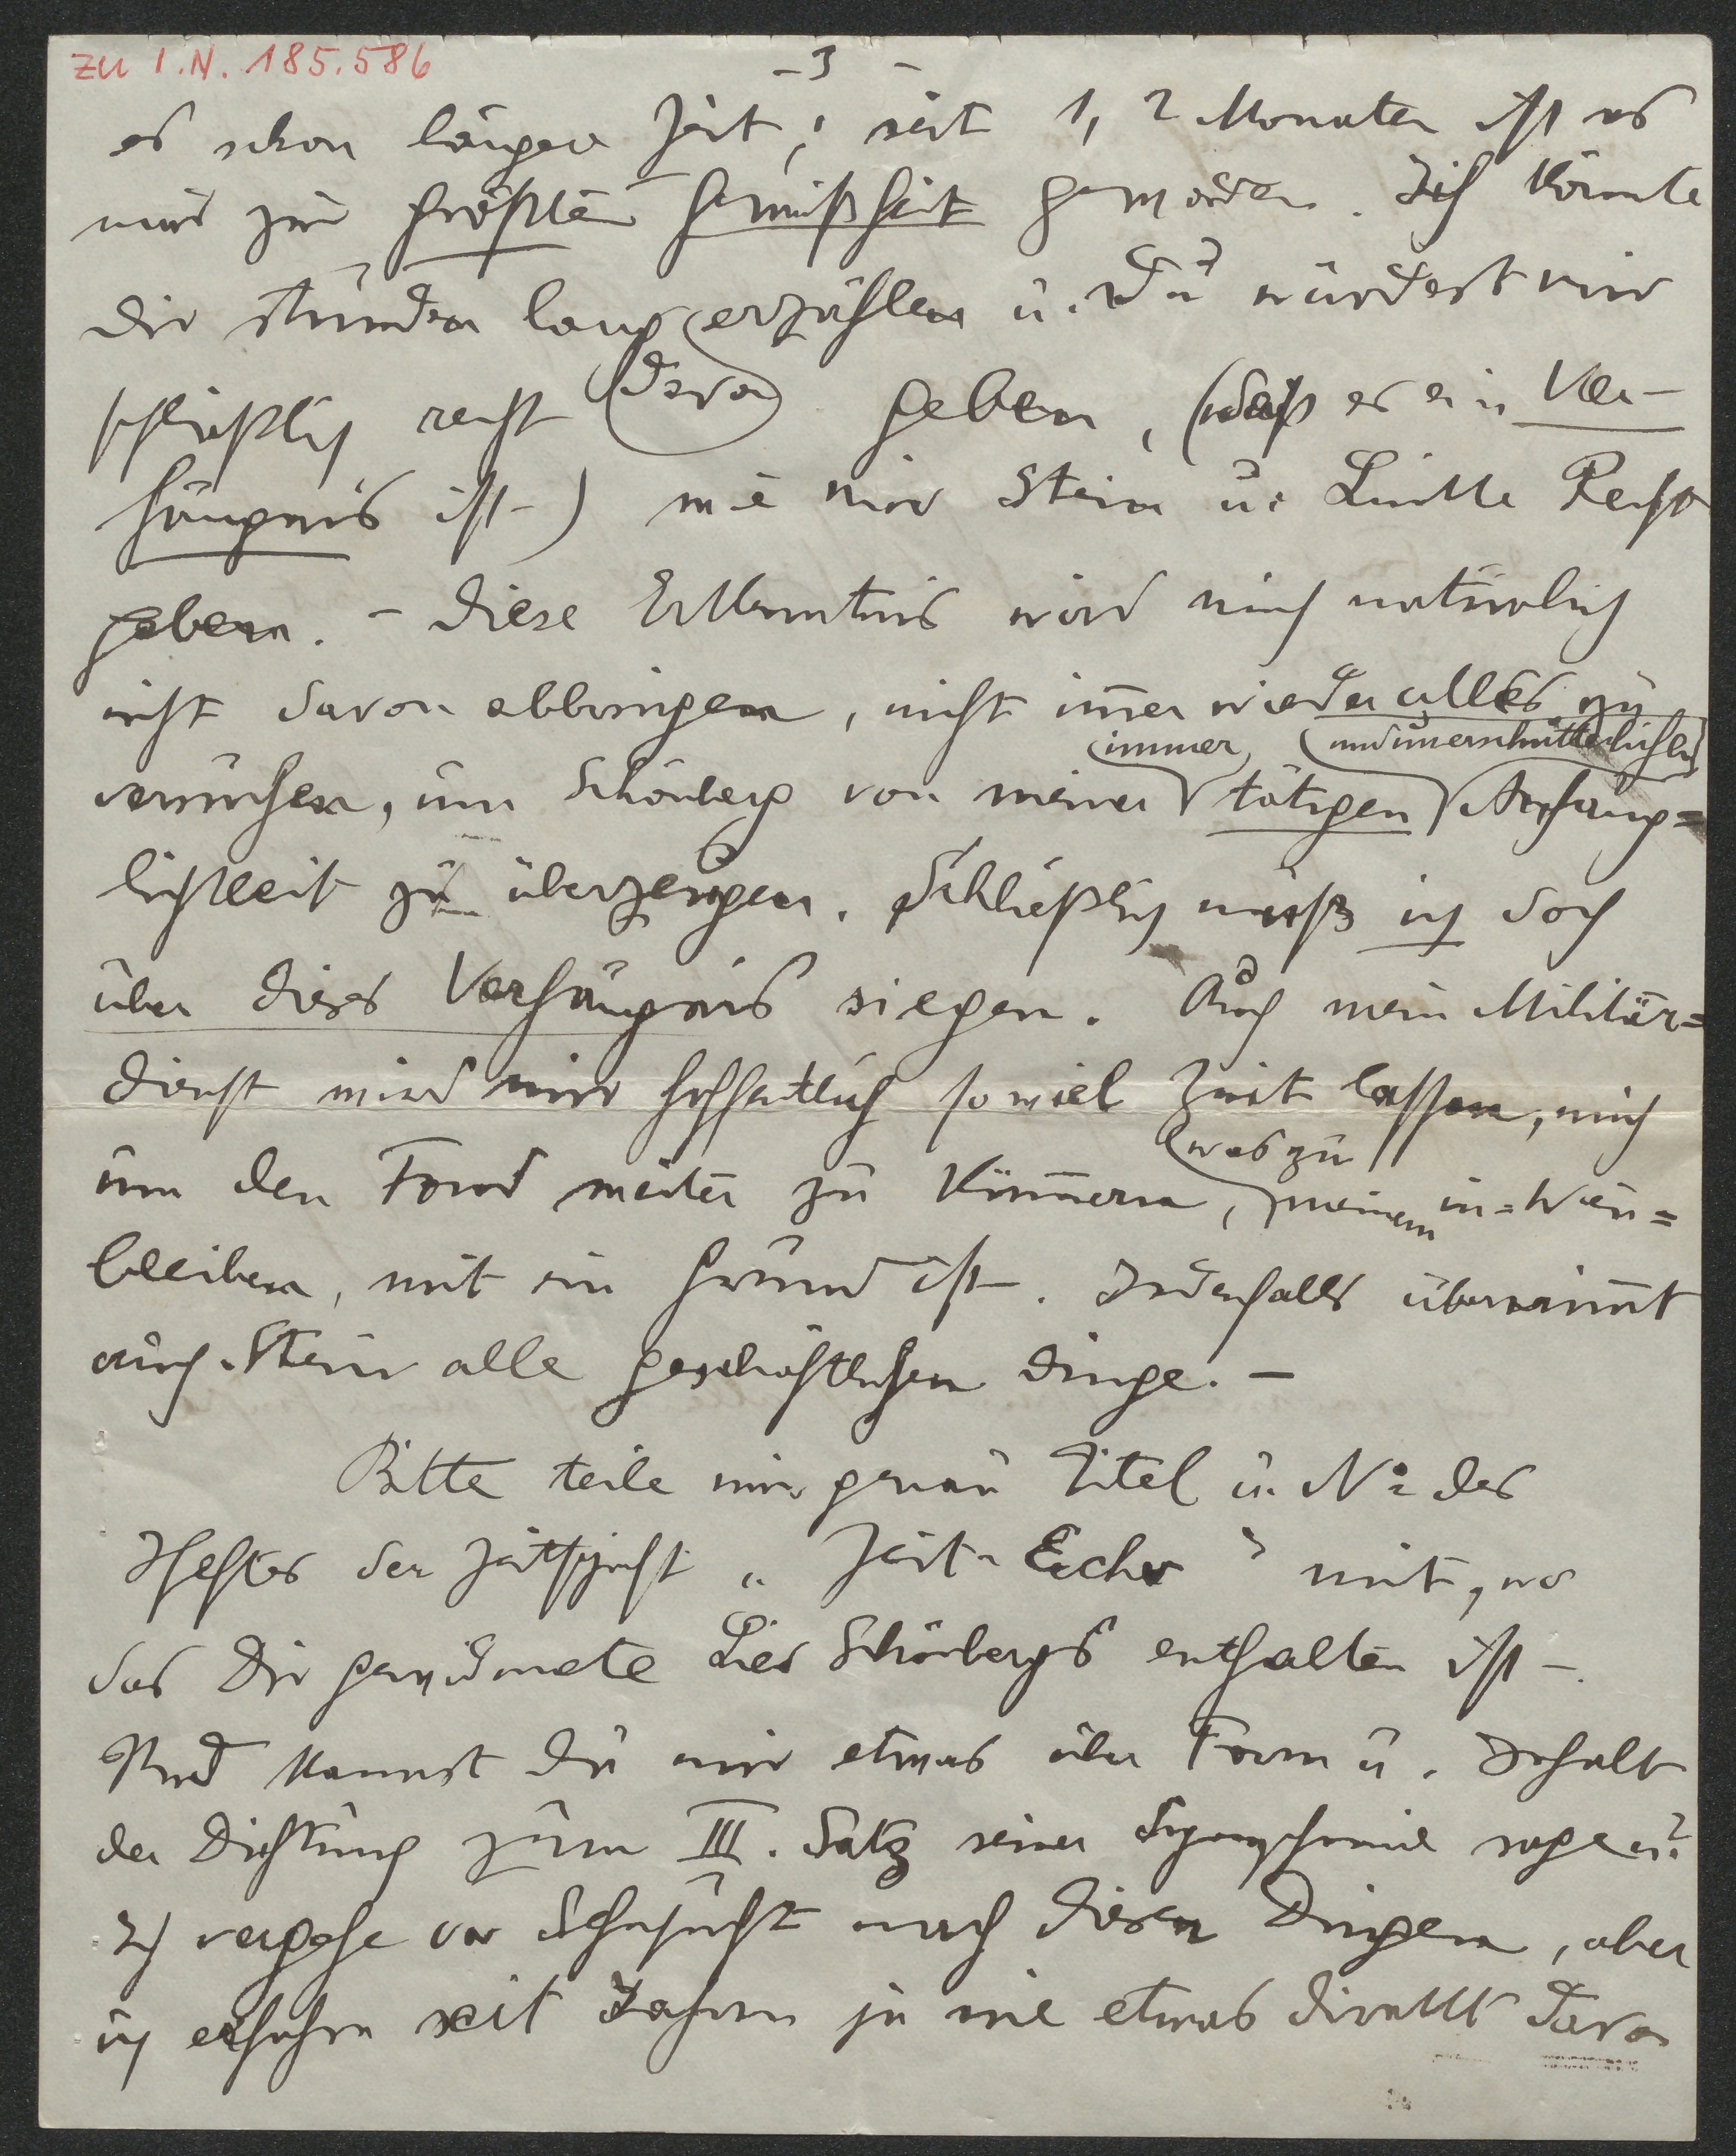 zu I.N. 185.586
- 3 -
es schon längere Zeit; seit 1, 2 Monaten ist es
mir zur größten Gewißheit geworden. Ich könnte
Dir stundenlang erzählen u. Du würdest mir
schließlich recht davon geben, (daß es ein Ver-
hängnis ist-) wie mir Stein u. Linke Recht
geben. - Diese Erkenntnis wird mich natürlich
nicht davon abbringen, nicht immer wieder alles zu
immer und unerschütterlichen
versuchen, um Schönberg von meiner tätigen Anhäng=
lichkeit zu überzeugen. Schließlich muß ich doch
über dieses Verhängnis siegen. Auch mein Militär=
dienst wird mir hoffentlich so viel Zeit lassen, mich
was zu
um den Fond weiter zu kümmern, meinem in=Wien=
bleiben, mit ein Grund ist. Jedenfalls übernimmt
auch Stein alle geschäftlichen Dinge. -
Bitte teile mir genau Titel u. No des
Heftes der Zeitschrift „Zeit-Echo" mit, wo
das Dir gewidmete Lied Schönbergs enthalten ist -.
Und kannst Du mir etwas über Form u. Inhalt
der Dichtung zum III. Satz seiner Symphonie sagen?
Ich vergehe vor Sehnsucht nach diesen Dingen, aber
ich erfahre seit Jahren ja nie etwas direkt davon